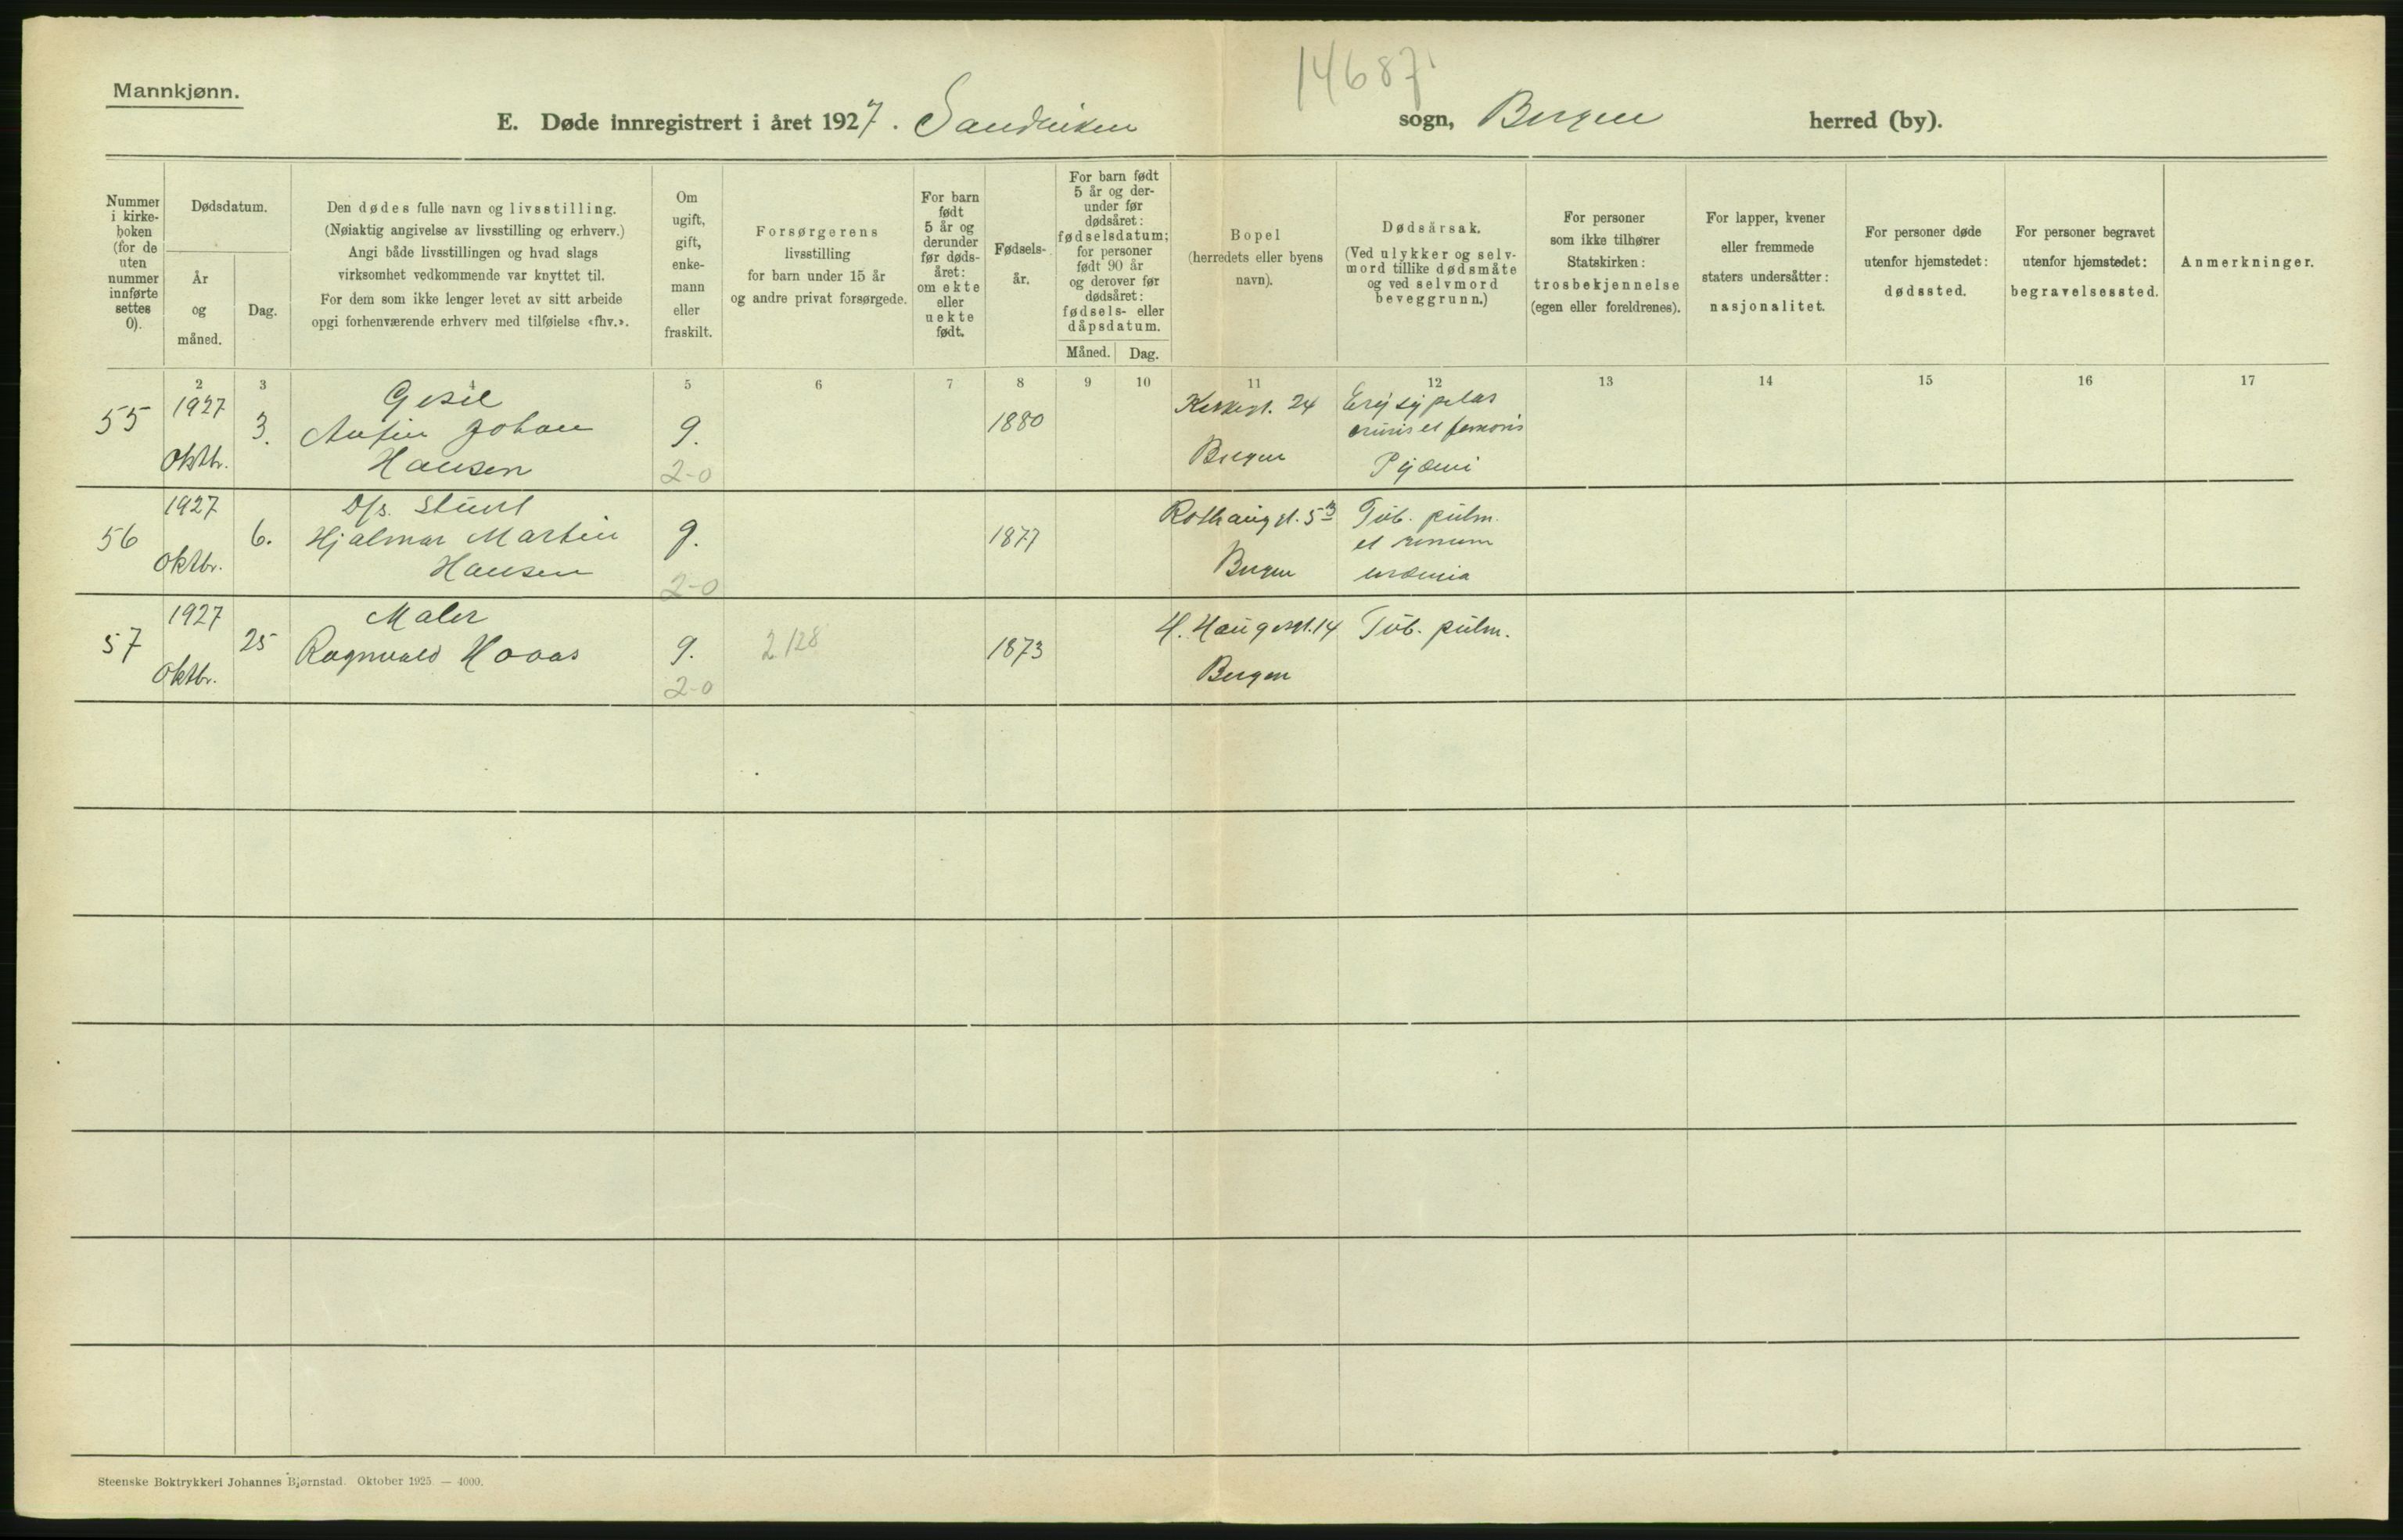 14687
Mannkjønn.
E. Døde innregistrert i året 1927. Sandviken sogn, Bergen herred (by).
Nummer
i kirke-
boken
(for de
uten
nummer
innførte
settes
0).
Dødsdatum.
År
og
måned.
Dag.
Den dødes fulle navn og livsstilling.
(Nøiaktig angivelse av livsstilling og erhverv.)
Angi både livsstillingen og hvad slags
virksomhet vedkommende var knyttet til.
For dem som ikke lenger levet av sitt arbeide
opgi forhenværende erhverv med tilføielse «fhv.».
Om
ugift,
gift,
enke-
mann
eller
fraskilt.
Forsørgerens
livsstilling
for barn under 15 år
og andre privat forsørgede.
For barn
født
5 år og
derunder
før døds-
året:
om ekte
eller
uekte
født.
Fødsels-
år.
For barn født
5 år og der-
under før
dødsåret:
fødselsdatum;
for personer
født 90 år
og derover før
dødsåret:
fødsels- eller
dåpsdatum.
Måned.
Dag.
Bopel
(herredets eller byens
navn).
Dødsårsak.
(Ved ulykker og selv-
mord tillike dødsmåte
og ved selvmord
beveggrunn.)
For personer
som ikke tilhører
Statskirken:
trosbekjennelse
(egen eller foreldrenes).
For lapper, kvener
eller fremmede
staters undersåtter:
nasjonalitet.
For personer døde
utenfor hjemstedet:
dødssted.
For personer begravet
utenfor hjemstedet:
begravelsessted.
Anmerkninger.
2 3 4 5 6 7 8 9 10 11 12 13 14 15 16 17
55
1927
Oktbr.
3.
Johan
Hansen
g.
2-0
1880
24
Bergen
Erysypelas
cruris et femoris
Pyæmi
56
1927
Oktbr.
6.
D/s.
Hjalmar Martin
Hansen
g.
2-0
1877
Bergen
Tub. pulm.
et renum
uræmia
57
1927
Oktbr.
25
Maler
Ragnvald Hovas
g.
2-0
2128
1873
H. Haugesgt. 14
Bergen
Tub. pulm.
Steenske Boktrykkeri Johannes Bjørnstad. Oktober 1925. — 4000.